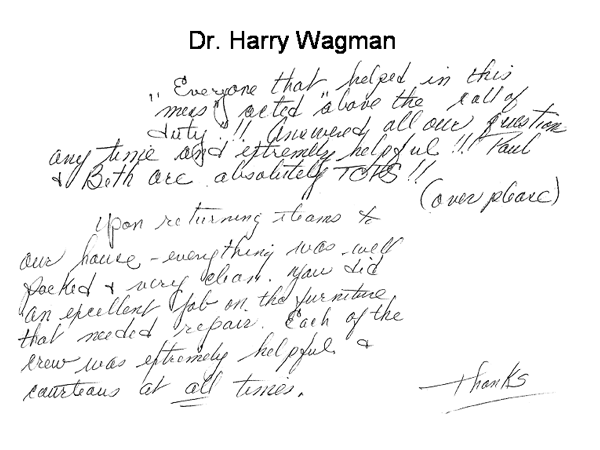 Dr. Harry Wagman
"Everyone that helped in this
mess" acted "above the call of
duty"!!! Answered all our question
any time and extremely helpful!! Paul
& Both are absolutely TOPS!!
(over please)
Upon returning items to
our house - everything was well
packed & very clean. You did
an excellent job on the furniture
that needed repair. Each of the
crew was extremely helpful &
courteous at all times.
Thanks